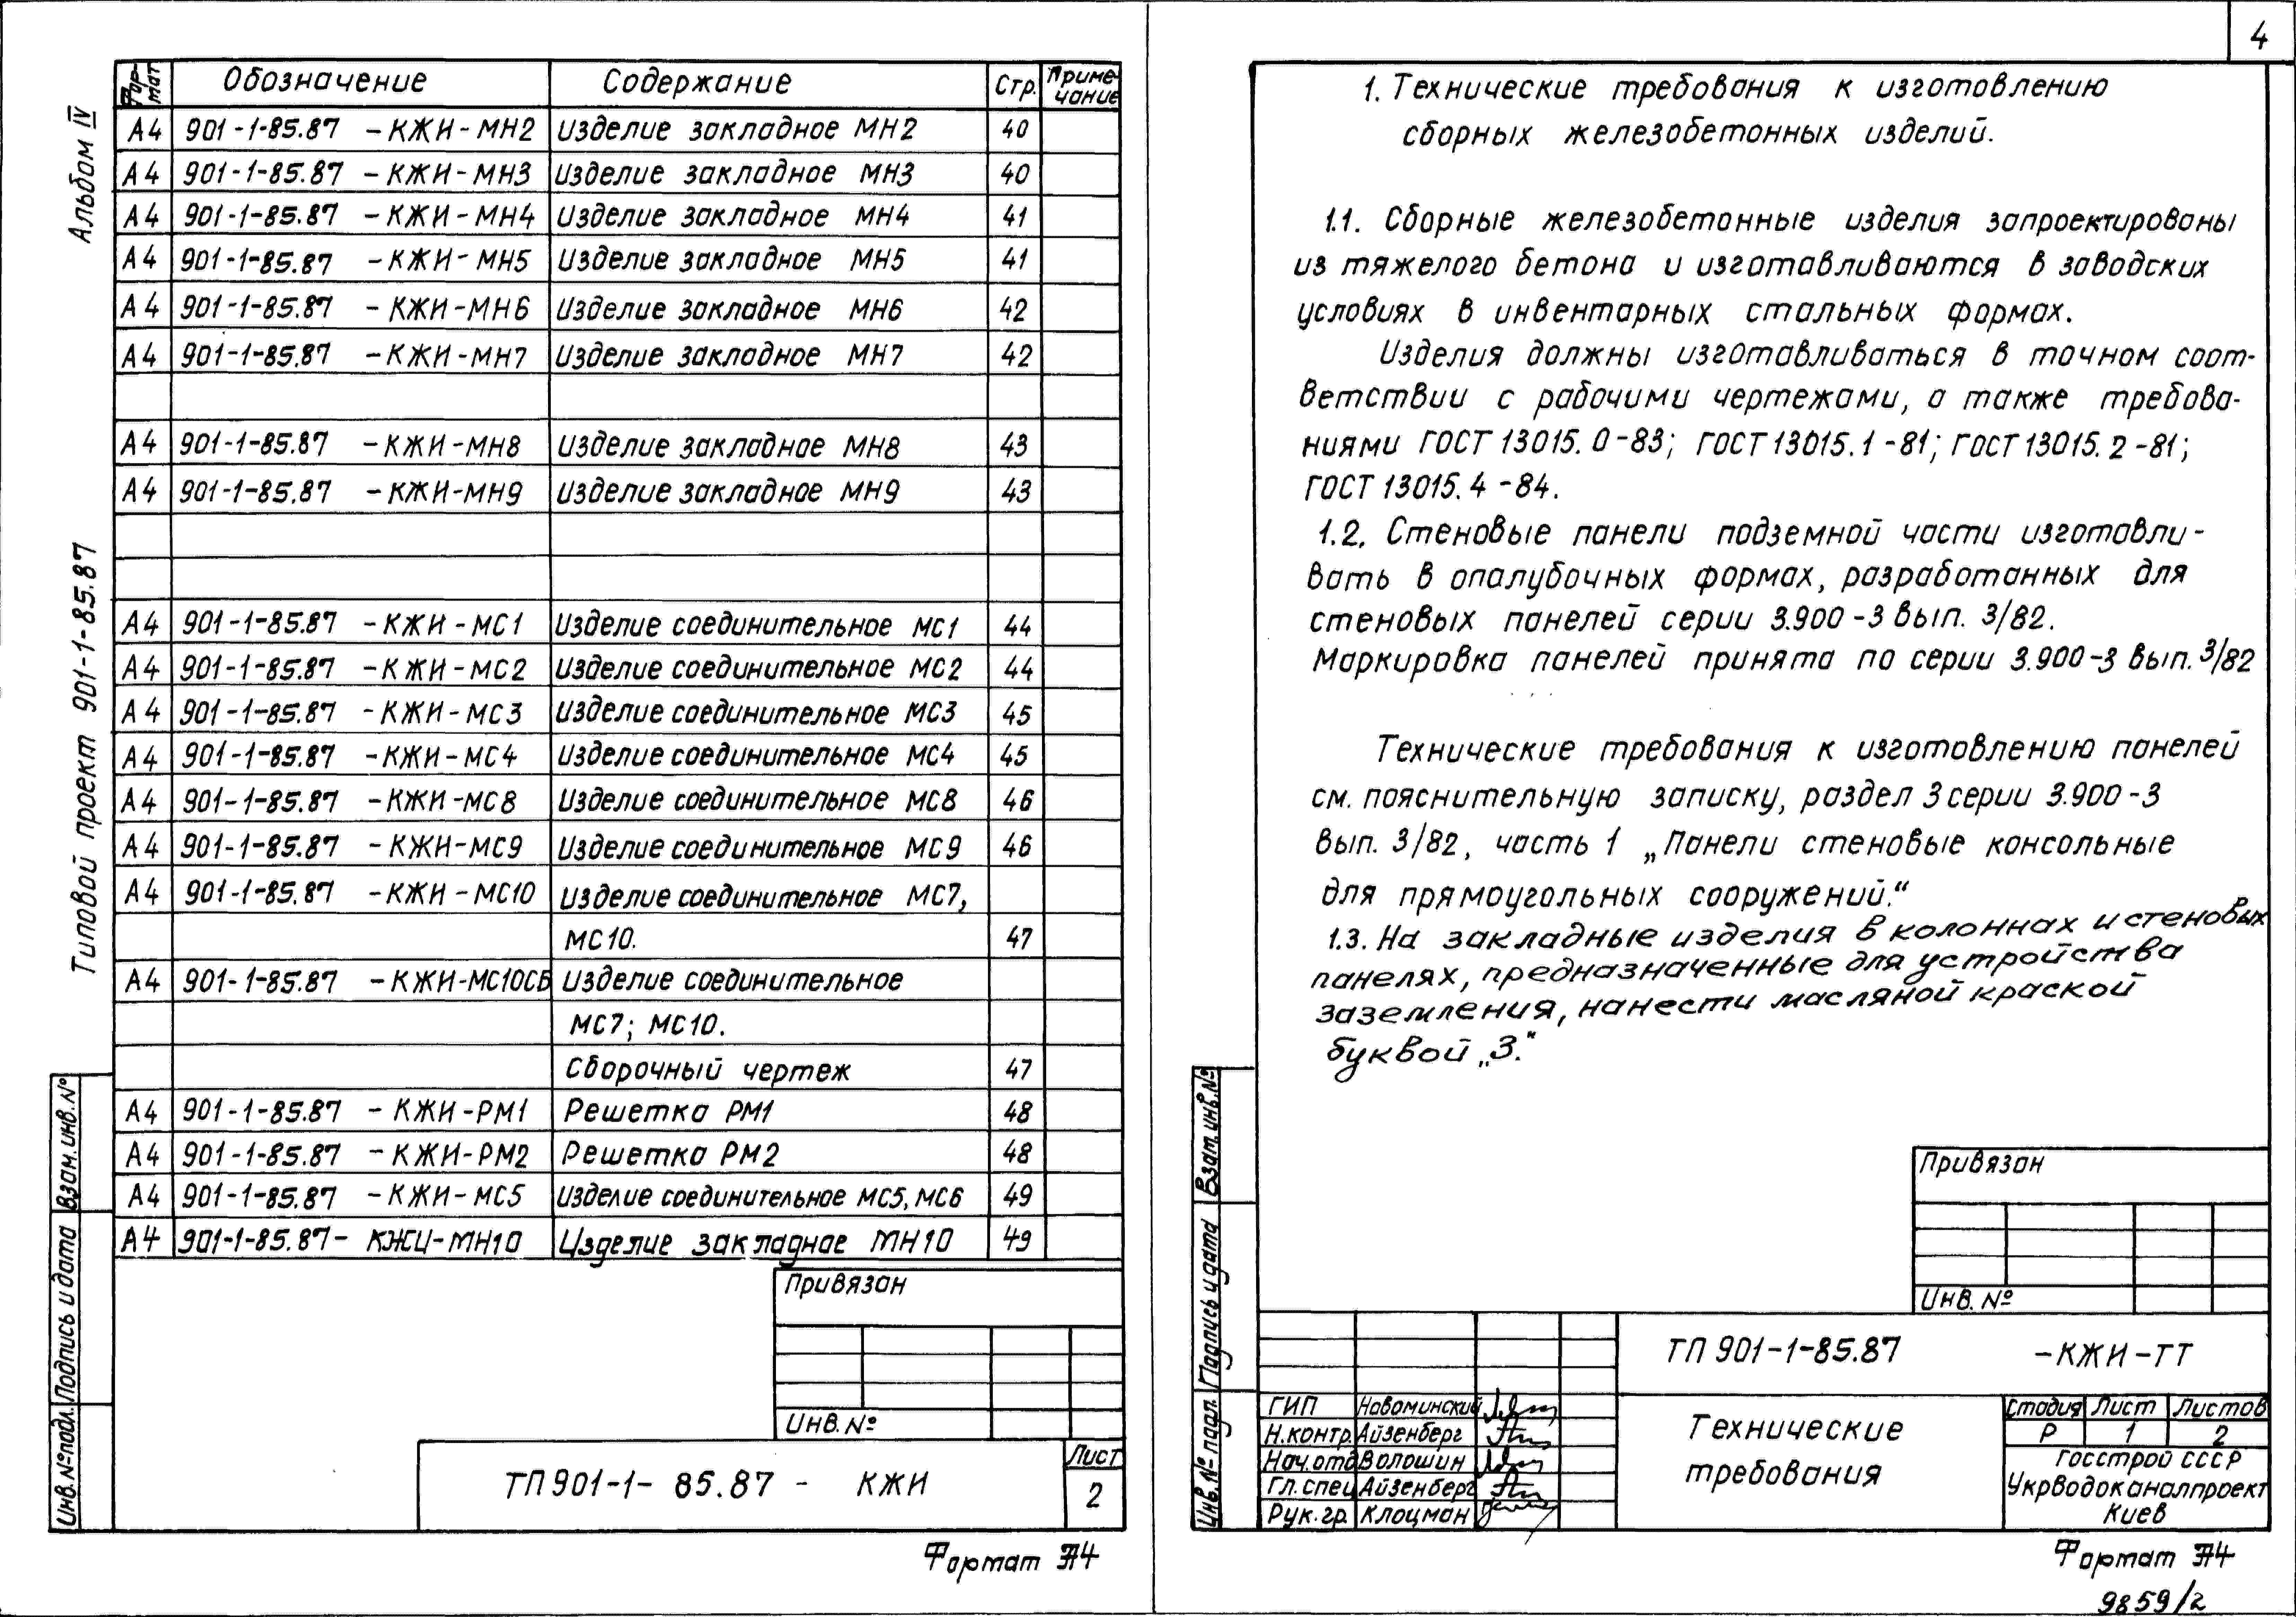 4
Альбом IV
Типовой проект 901-1-85.87
Фор-мат Обозначение Содержание Стр. Приме-чание
А4 901-1-85.87 -КЖИ-МН2 Изделие закладное МН2 40
А4 901-1-85.87 -КЖИ-МН3 Изделие закладное МН3 40
А4 901-1-85.87 -КЖИ-МН4 Изделие закладное МН4 41
А4 901-1-85.87 -КЖИ-МН5 Изделие закладное МН5 41
А4 901-1-85.87 -КЖИ-МН6 Изделие закладное МН6 42
А4 901-1-85.87 -КЖИ-МН7 Изделие закладное МН7 42
А4 901-1-85.87 -КЖИ-МН8 Изделие закладное МН8 43
А4 901-1-85.87 -КЖИ-МН9 Изделие закладное МН9 43
А4 901-1-85.87 -КЖИ-МС1 Изделие соединительное МС1 44
А4 901-1-85.87 -КЖИ-МС2 Изделие соединительное МС2 44
А4 901-1-85.87 -КЖИ-МС3 Изделие соединительное МС3 45
А4 901-1-85.87 -КЖИ-МС4 Изделие соединительное МС4 45
А4 901-1-85.87 -КЖИ-МС8 Изделие соединительное МС8 46
А4 901-1-85.87 -КЖИ-МС9 Изделие соединительное МС9 46
А4 901-1-85.87 -КЖИ-МС10 Изделие соединительное МС7,
МС10. 47
А4 901-1-85.87 -КЖИ-МС10СБ Изделие соединительное
МС7; МС10.
Сборочный чертеж 47
А4 901-1-85.87 -КЖИ-РМ1 Решетка РМ1 48
А4 901-1-85.87 -КЖИ-РМ2 Решетка РМ2 48
А4 901-1-85.87 -КЖИ-МС5 Изделие соединительное МС5, МС6 49
А4 901-1-85.87- КЖИ-МН10 Изделие закладное МН10 49
Взам.инв.№
Подпись и дата
Инв.№ подл.
Привязан
Инв.№
ТП 901-1-85.87 - КЖИ
Лист
2
Формат А4
1. Технические требования к изготовлению
сборных железобетонных изделий.
1.1. Сборные железобетонные изделия запроектированы
из тяжелого бетона и изготавливаются в заводских
условиях в инвентарных стальных формах.
Изделия должны изготавливаться в точном соот-
ветствии с рабочими чертежами, а также требова-
ниями ГОСТ 13015.0-83; ГОСТ 13015.1-81; ГОСТ 13015.2-81;
ГОСТ 13015.4-84.
1.2. Стеновые панели подземной части изготавли-
вать в опалубочных формах, разработанных для
стеновых панелей серии 3.900-3 вып. 3/82.
Маркировка панелей принята по серии 3.900-3 вып. 3/82
Технические требования к изготовлению панелей
см. пояснительную записку, раздел 3 серии 3.900-3
вып. 3/82, часть 1 „Панели стеновые консольные
для прямоугольных сооружений."
1.3. На закладные изделия в колоннах и стеновых
панелях, предназначенные для устройства
заземления, нанести масляной краской
буквой „З."
Взам.инв.№
Подпись и дата
Инв.№ подл.
Привязан
Инв.№
ТП 901-1-85.87 -КЖИ-ТТ
ГИП Новоминский
Н.контр. Айзенберг
Нач.отд Волошин
Гл.спец Айзенберг
Рук.гр. Клоцман
Технические
требования
Стадия Лист Листов
Р 1 2
Госстрой СССР
Укрводоканалпроект
Киев
Формат А4
9859/2